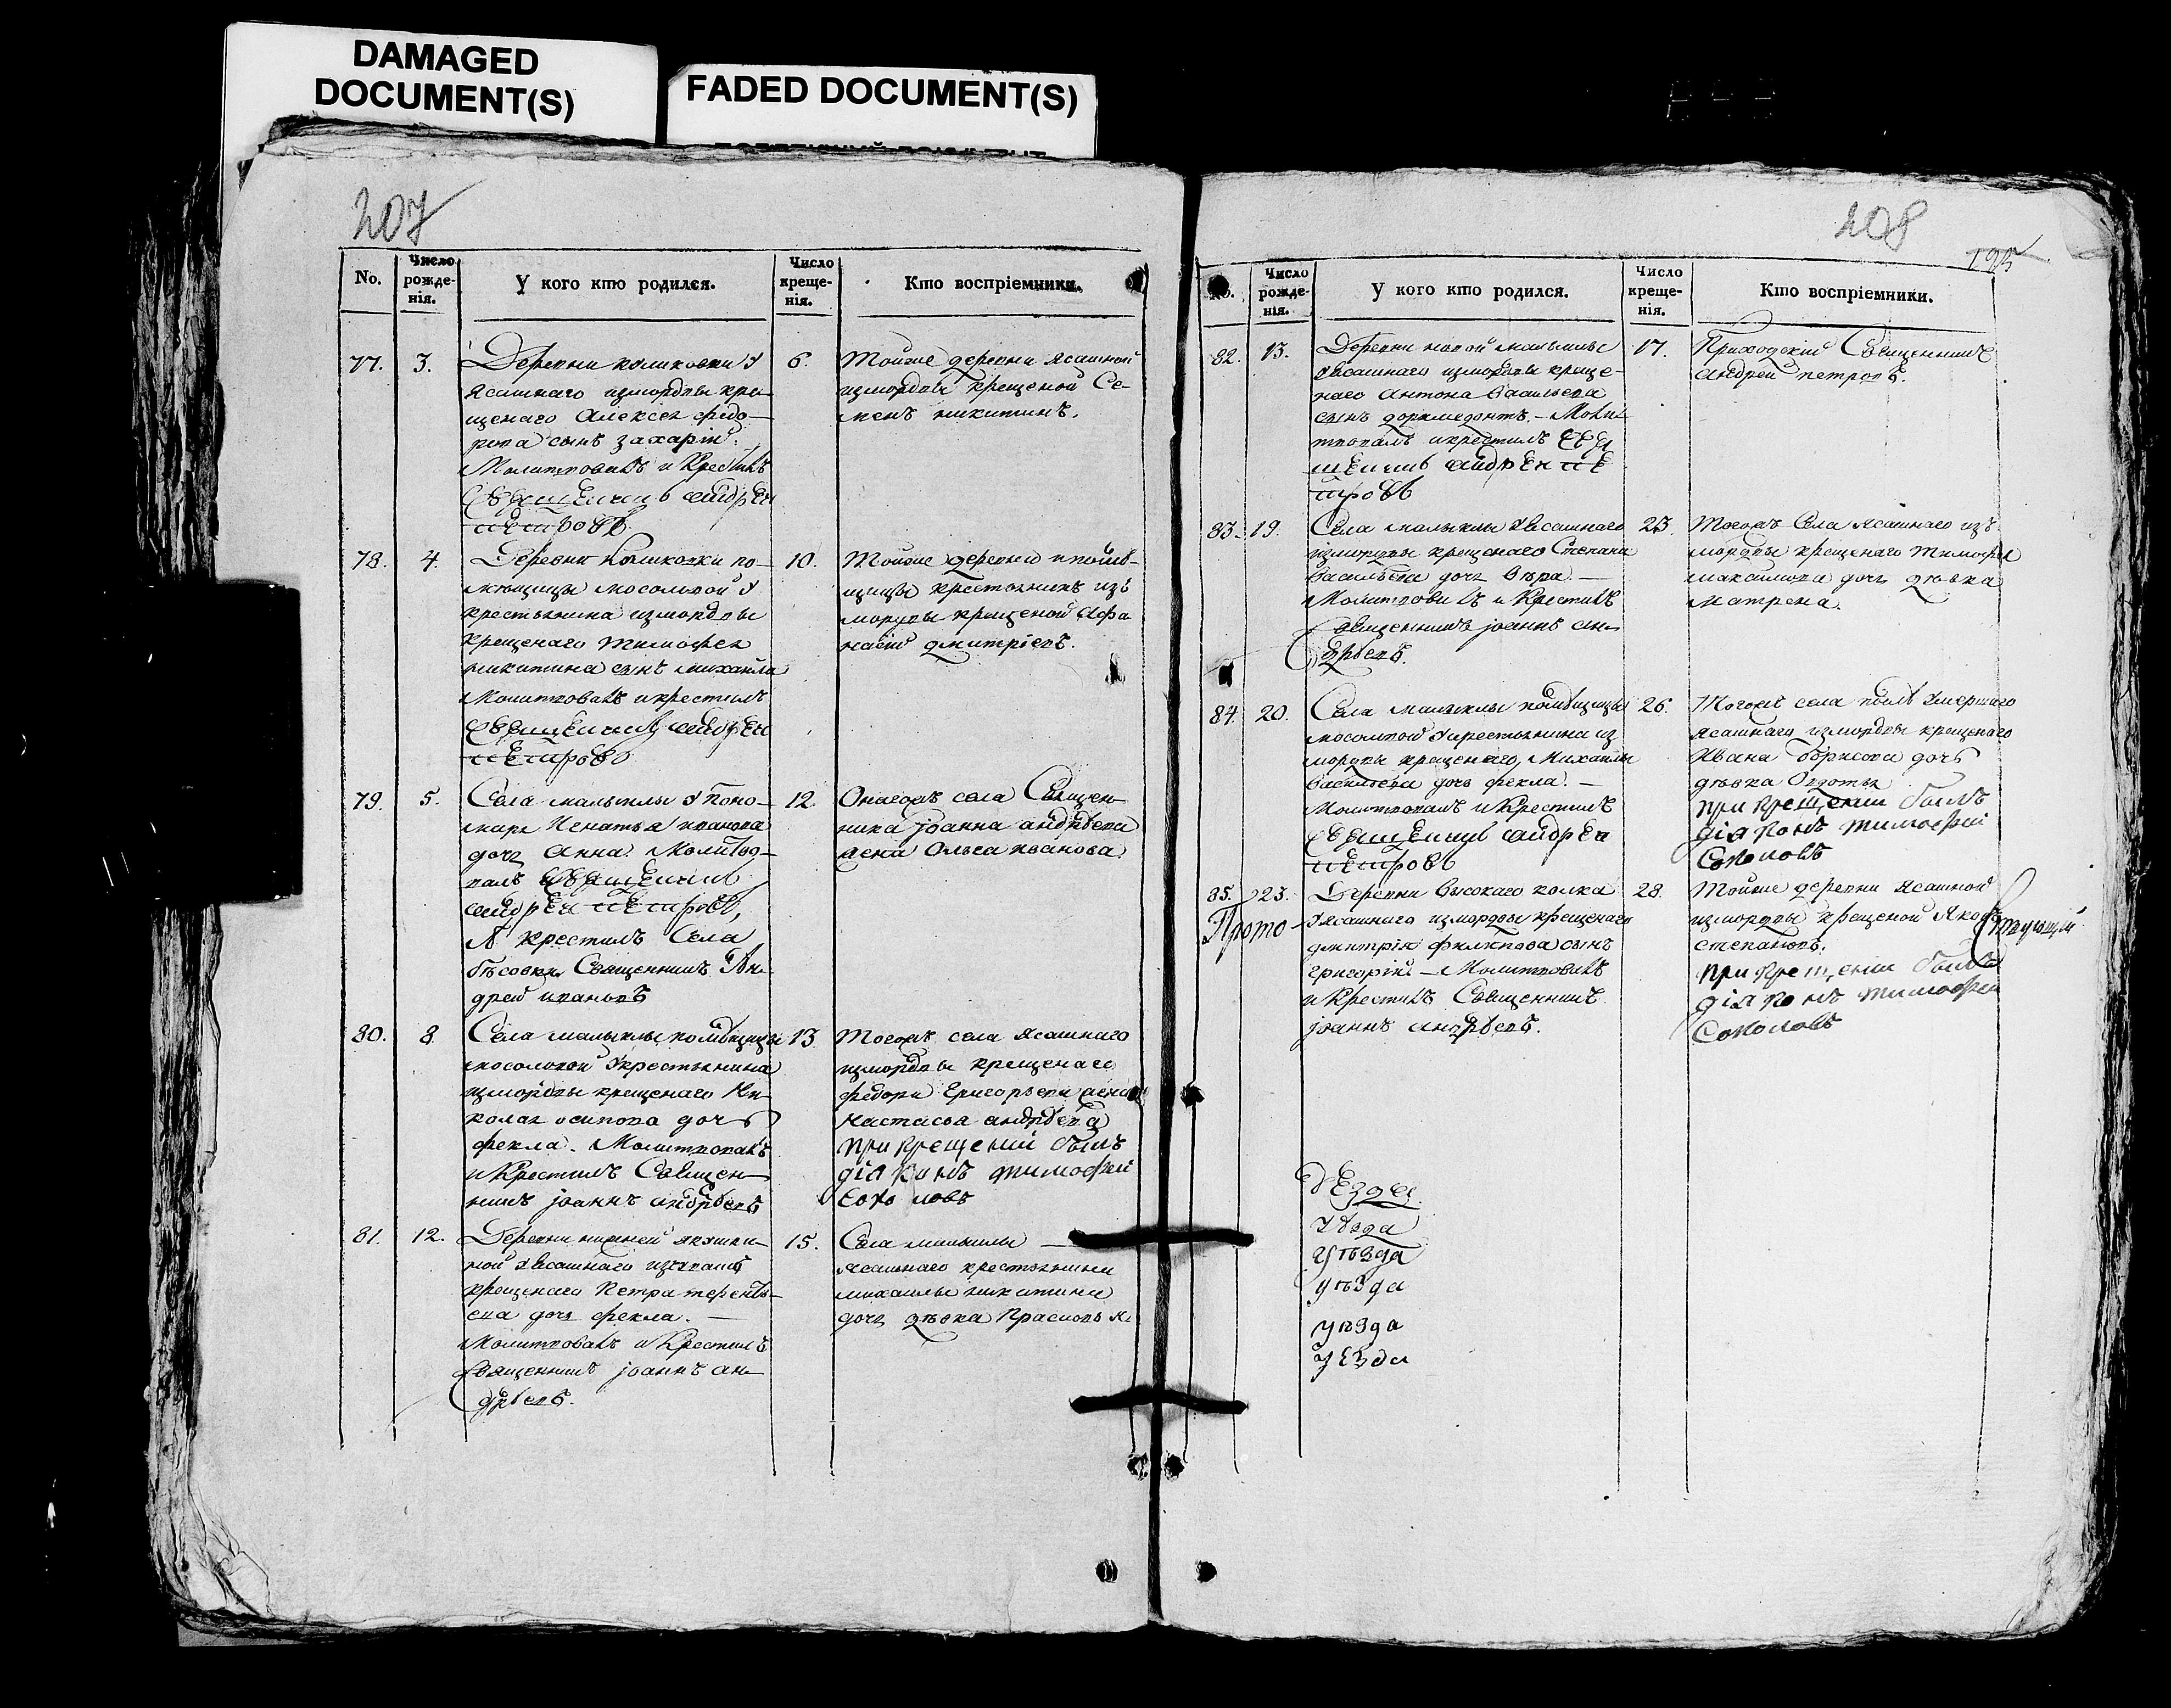 DAMAGED
DOCUMENT(S)
FADED DOCUMENT(S)
207
No.
Число рожде-нія.
У кого кто родился.
Число креще-нія.
Кто воспріемники.
77.
3.
Деревни коликовки у
ясашнаго измордвы кре-
щенаго Алексея федо-
рова сынъ захарій.
Молитвовалъ и крестилъ
Священникъ андреи
петровъ.
6.
Тойже деревни ясашной
измордвы крещеной Се-
менъ никитинъ.
78.
4.
Деревни коликовки по-
мѣщицы мосоловой у
крестьянина измордвы
крещенаго тимофея
никитина сынъ михаила
Молитвовалъ икрестилъ
священникъ андреи
петровъ
10.
Тойже деревни и помѣ-
щицы крестьянинъ изъ
мордвы крещеной Афа
насій дмитріевъ.
79.
5.
Села малыклы у поно-
маря Игнатья иванова
дочь Анна. Молитво-
валъ священникъ
андреи петровъ,
А крестилъ Села
бѣсовки Священникъ Ан-
дрей ивановъ
12.
Онагожъ села Священ-
ника Іоанна андрѣева
жена Ольга иванова.
80.
8.
Села малыклы помѣщицы
мосоловой укрестьянина
измордвы крещенаго Ни-
колая осипова дочь
фекла. Молитвовалъ
и крестилъ Священ-
никъ Іоаннъ андрѣевъ
13
Тогожъ села ясашнаго
измордвы крещенаго
федора григорьева жена
настасья андрѣева
при крещеніи былъ
діяконъ тимофей
Соколовъ
81.
12.
Деревни нижней якушки-
ной уясашнаго изчувашъ
крещенаго Петра терентъ-
ева дочь фекла. —
Молитвовалъ и крестилъ
Священникъ Іоаннъ ан-
дрѣевъ.
15.
Села малыклы —
ясашнаго крестьянина
михаилы никитина
дочь дѣвка Прасковья
208
195
No.
Число рожде-нія.
У кого кто родился.
Число креще-нія.
Кто воспріемники.
82.
13.
Деревни новой малыклы
уясашнаго измордвы креще-
наго Антона васильева
сынъ доримедонтъ. — Моли
твовалъ икрестилъ свя
щенникъ андреи пе
тровъ
17.
Приходскій Священникъ
андрей петровъ.
83.
19.
Села малыклы уясашнаго
измордвы крещенаго Степана
васильева дочь вѣра. —
Молитвовалъ и крестилъ
Священникъ Іоаннъ ан-
дрѣевъ.
23.
Тогожъ Села ясашнаго изъ
мордвы крещенаго тимофея
максимова дочь дѣвка
матрена.
84.
20.
Села малыклы помѣщицы
мосоловой укрестьянина из
мордвы крещенаго, михаилы
васильева дочь фекла. —
Молитвовалъ и крестилъ
священникъ андреи
петровъ
26.
Тогожъ села умершаго
ясашнаго измордвы крещенаго
Ивана борисова дочь
дѣвка Овдотья
при крещеніи былъ
діяконъ тимофей
Соколовъ
85.
23.
Деревни высокаго колка
уясашнаго измордвы крещенаго
дмитрія филипова сынъ
григорій — Молитвовалъ
и крестилъ Священникъ
Іоаннъ андрѣевъ.
28.
Тойже деревни ясашной
измордвы крещеной Яковъ
степановъ.
при крещеніи былъ
діяконъ тимофей
Соколовъ
Прото-
уѣзда
уѣзда
уѣзда
уѣзда
уезда